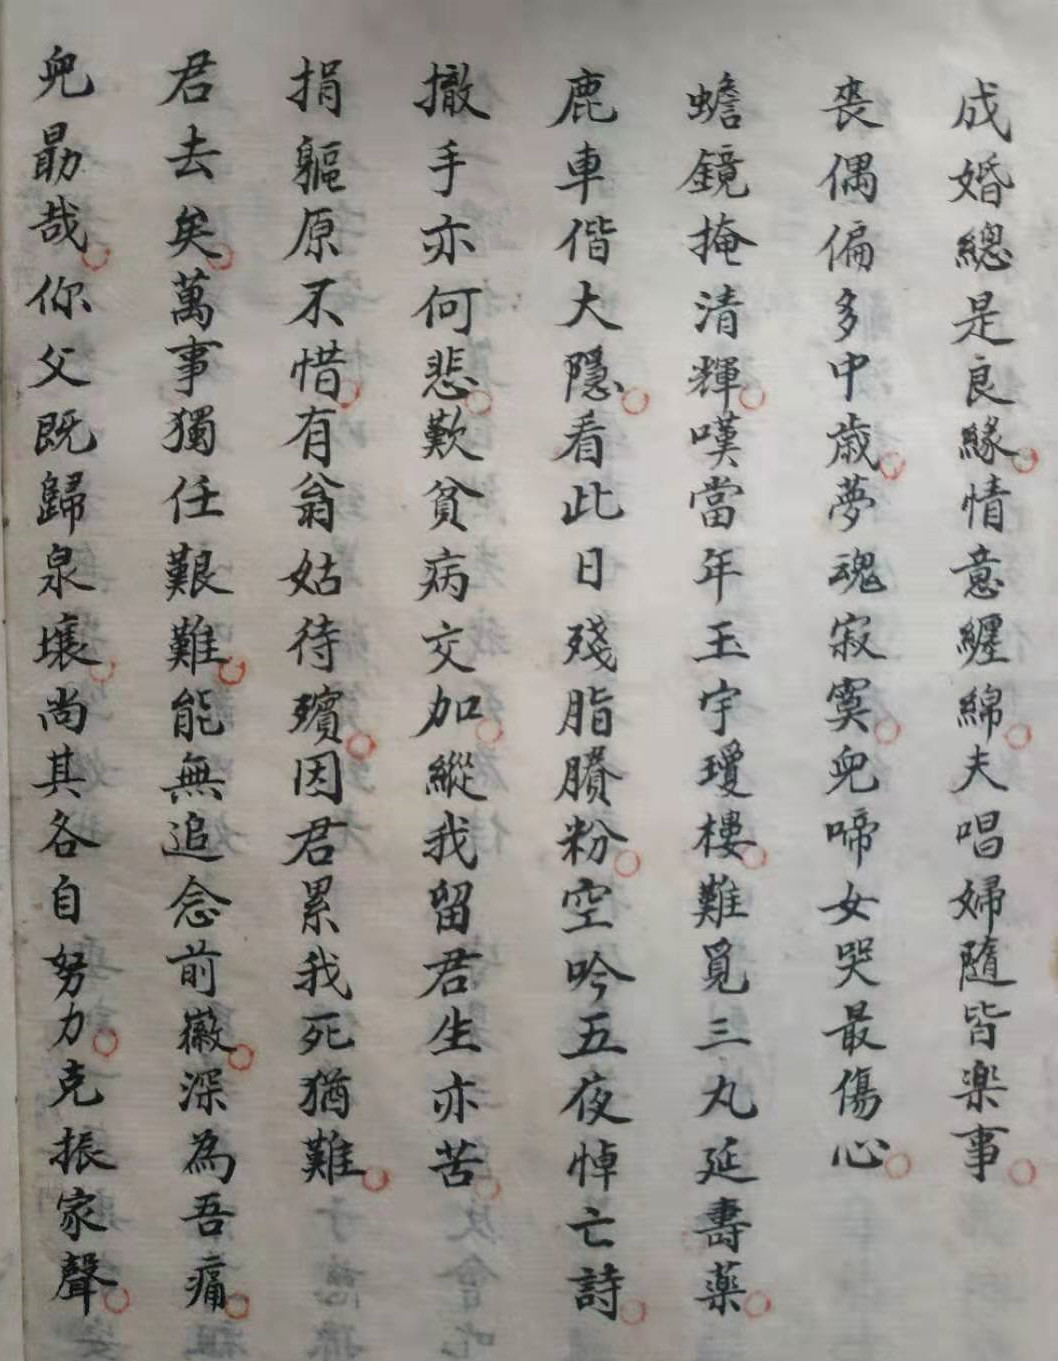 成婚總是良緣情意纏綿夫唱婦隨皆楽事
喪偶偏多中歳夢魂寂寞兒啼女哭最傷心
蟾鏡掩清輝嘆當年玉宇瓊樓難覓三丸延壽藥
鹿車偕大隱看此日殘脂賸粉空吟五夜悼亡詩
撤手亦何悲歎貧病交加縱我留君生亦苦
捐軀原不惜有翁姑待殯因君累我死猶難
君去矣萬事獨任艱難能無追念前徽深為吾痛
兒勗哉你父既歸泉壤尚其各自努力克振家聲